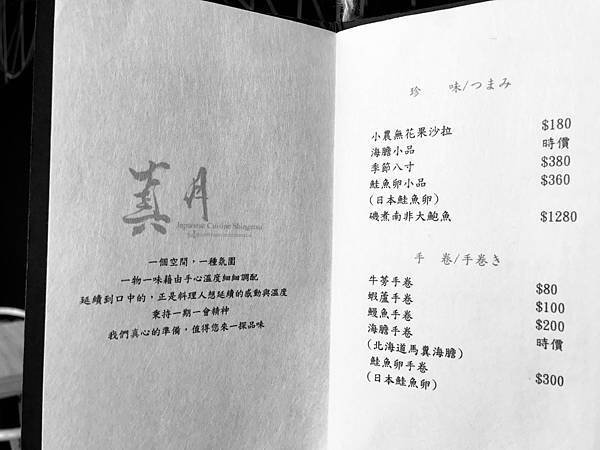 真月
Japanese Cuisine Shingetsu
一個空間，一種氛圍
一物一味藉由手心溫度細細調配
延續到口中的，正是料理人想延續的感動與溫度
秉持一期一會精神
我們真心的準備，值得您來一探品味
珍 味/つまみ
小農無花果沙拉 $180
海膽小品 時價
季節八寸 $380
鮭魚卵小品 $360
(日本鮭魚卵)
磯煮南非大鮑魚 $1280
手 卷/手巻き
牛蒡手卷 $80
蝦蘆手卷 $100
鰻魚手卷 $200
海膽手卷 時價
(北海道馬糞海膽)
鮭魚卵手卷
(日本鮭魚卵) $300